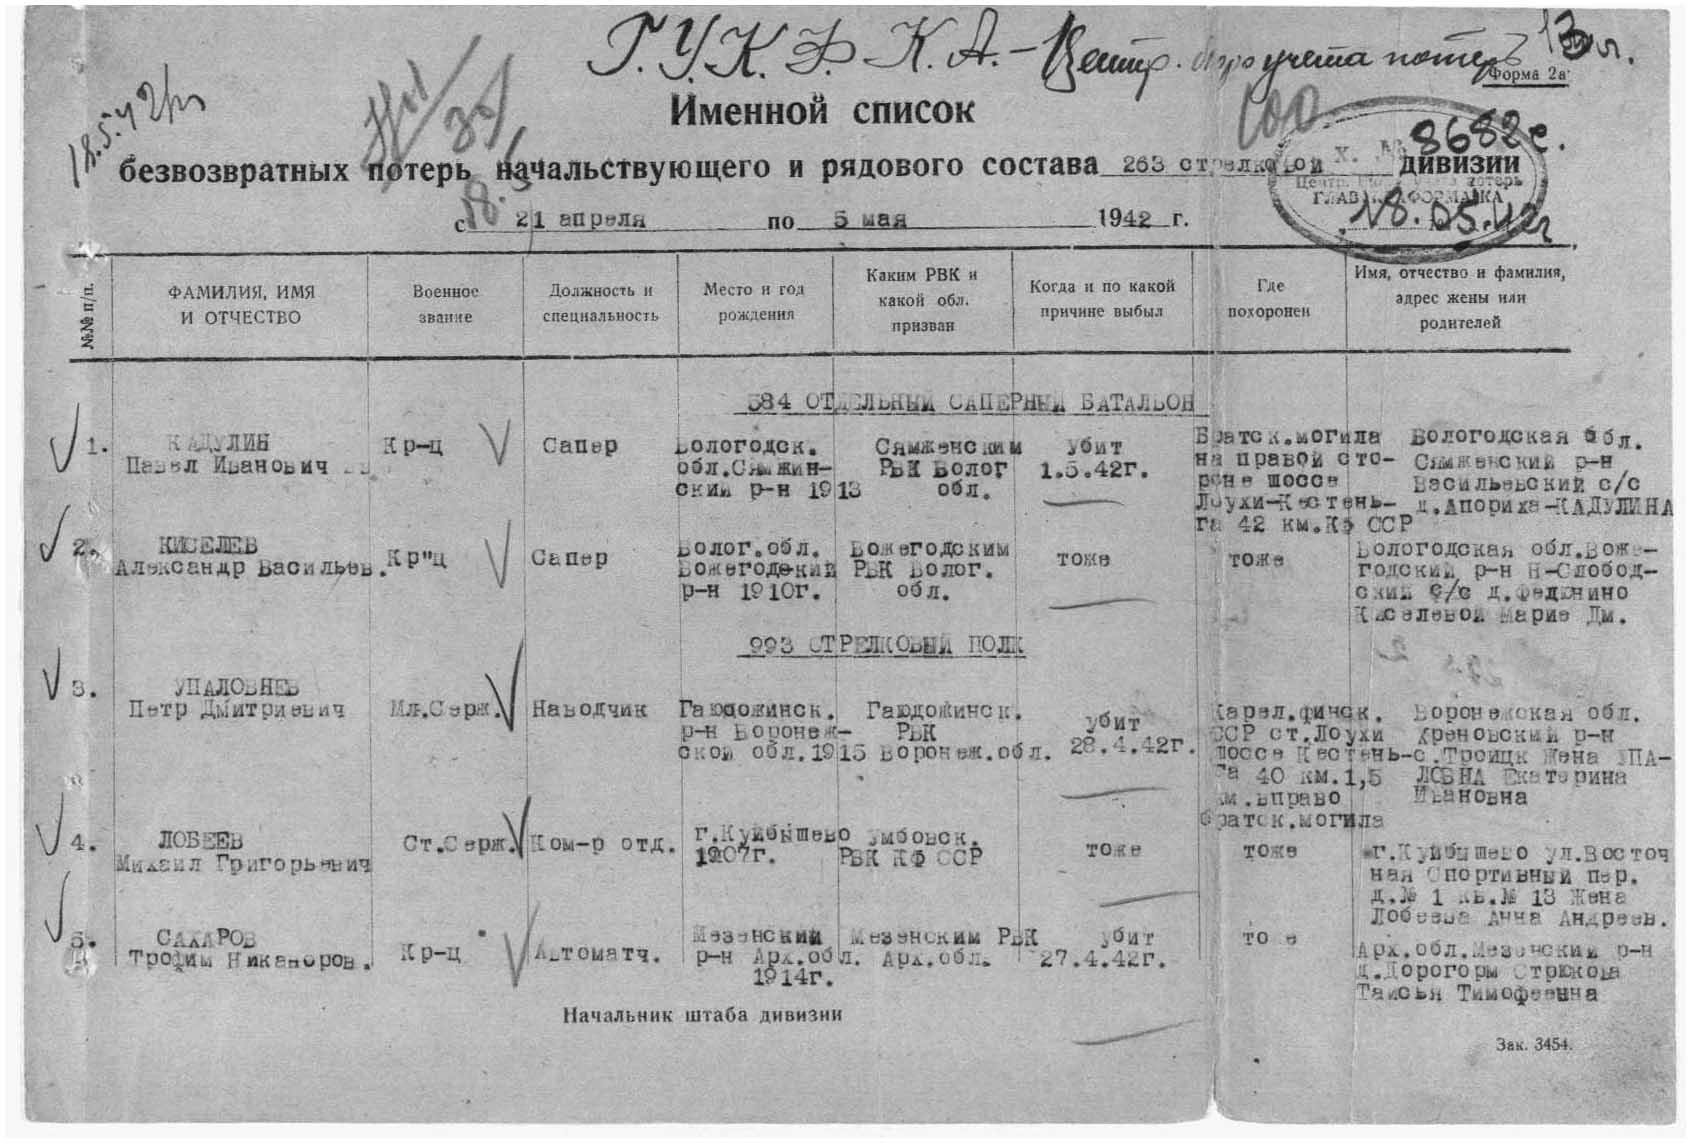 Г.У.К.Ф.К.А.- Центр. бюро учета потерь
Форма 2а
Именной список
8682с.
безвозвратных потерь начальствующего и рядового состава 263 стрелковой дивизии
потерь
18.5.42
ГЛАВ
18.05.42г
с 21 апреля по 5 мая 1942 г.
№№ п/п.
ФАМИЛИЯ, ИМЯ
И ОТЧЕСТВО
Военное
звание
Должность и
специальность
Место и год
рождения
Каким РВК и
какой обл.
призван
Когда и по какой
причине выбыл
Где
похоронен
Имя, отчество и фамилия,
адрес жены или
родителей
384 ОТДЕЛЬНЫЙ САПЕРНЫЙ БАТАЛЬОН
1.
КАДУЛИН
Павел Иванович
Кр-ц
Сапер
Вологодск.
обл.Сямжин-
ский р-н 1913
Сямженским
РВК Волог
обл.
убит
1.5.42г.
Братск.могила
на правой сто-
роне шоссе
Лоухи-Кестень-
га 42 км.КФ ССР
Вологодская обл.
Сямженский р-н
Васильевский с/с
д.Апориха-КАДУЛИНА
2.
КИСЕЛЕВ
Александр Васильев.
Кр"ц
Сапер
Волог.обл.
Вожегодский
р-н 1910г.
Вожегодским
РВК Волог.
обл.
тоже
тоже
Вологодская обл.Воже-
годский р-н Н-Слобод-
ский с/с д.Федюнино
Киселевой Марие Дм.
993 СТРЕЛКОВЫЙ ПОЛК
3.
УПАЛОВНЕВ
Петр Дмитриевич
Мл.Серж.
Наводчик
Гаюдожинск.
р-н Воронеж-
ской обл.1915
Гаюдожинск.
РВК
Воронеж.обл.
убит
28.4.42г.
Карел.финск.
ССР ст.Лоухи
шоссе Кестень-
га 40 км.1,5
км.вправо
братск.могила
Воронежская обл.
Хреновский р-н
с.Троицк жена УПА-
ЛОВНА Екатерина
Ивановна
4.
ЛОБЕЕВ
Михаил Григорьевич
Ст.Серж.
Ком-р отд.
г.Куйбышево
1907г.
Умбовск.
РВК КФ ССР
тоже
тоже
г.Куйбышево ул.Восточ
ная Спортивный пер.
д.№ 1 кв.№ 13 жена
Лобеева Анна Андреев.
5.
САХАРОВ
Трофим Никаноров.
Кр-ц
Автоматч.
Мезенский
р-н Арх.обл.
1914г.
Мезенским РВК
Арх.обл.
убит
27.4.42г.
тоже
Арх.обл.Мезенский р-н
д.Дорогоры Стрюкова
Таисья Тимофеевна
Начальник штаба дивизии
Зак. 3454.